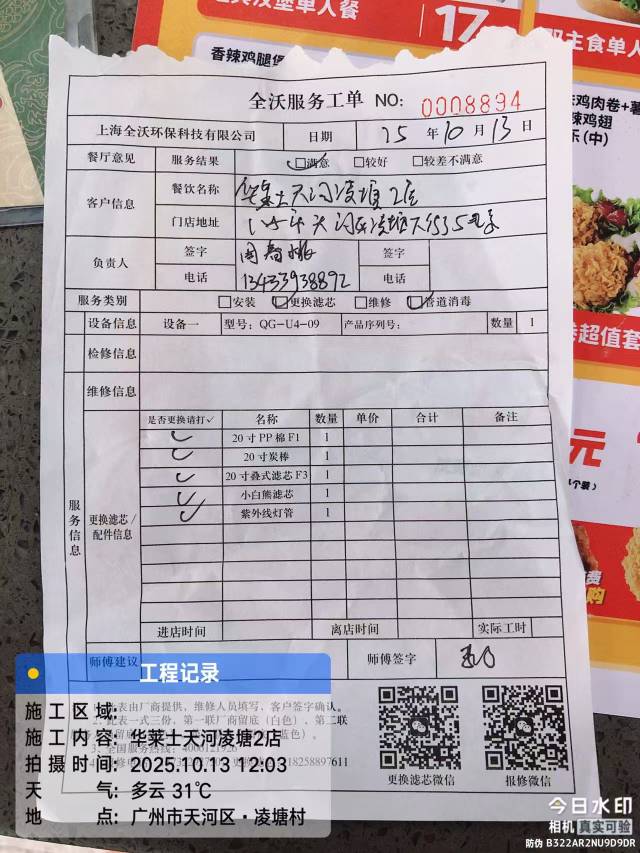 典汉堡单人餐
17
双主食单人
香辣鸡腿堡
鸡肉卷+薯
辣鸡翅
乐(中)
全沃服务工单 NO: 0008894
上海全沃环保科技有限公司 日期 25 年 10 月 13 日
餐厅意见 服务结果 ☑满意 □较好 □较差不满意
客户信息 餐饮名称 华莱士天河凌塘2店
门店地址
负责人 签字 签字
电话 13433938892 电话
服务类别 □安装 ☑更换滤芯 □维修 ☑管道消毒
设备信息 设备一 型号: QG-U4-09 产品序列号: 数量 1
检修信息
维修信息
服务信息
更换滤芯/配件信息
是否更换请打✓ 名称 数量 单价 合计 备注
✓ 20寸PP棉F1 1
✓ 20寸炭棒 1
✓ 20寸叠式滤芯F3 1
✓ 小白熊滤芯 1
✓ 紫外线灯管 1
进店时间 离店时间 实际工时
师傅建议 师傅签字
此表由厂商提供、维修人员填写、客户签字确认。
此表一式三份，第一联厂商留底（白色）、第二联
蓝色）。
全国服务热线: 4000121926
18258897611
更换滤芯微信 报修微信
超值套
元
个装）
费
购
工程记录
施工区域:
施工内容: 华莱士天河凌塘2店
拍摄时间: 2025.10.13 12:03
天气: 多云 31℃
地点: 广州市天河区·凌塘村
今日水印
相机 真实可验
防伪 B322AR2NU9D9DR